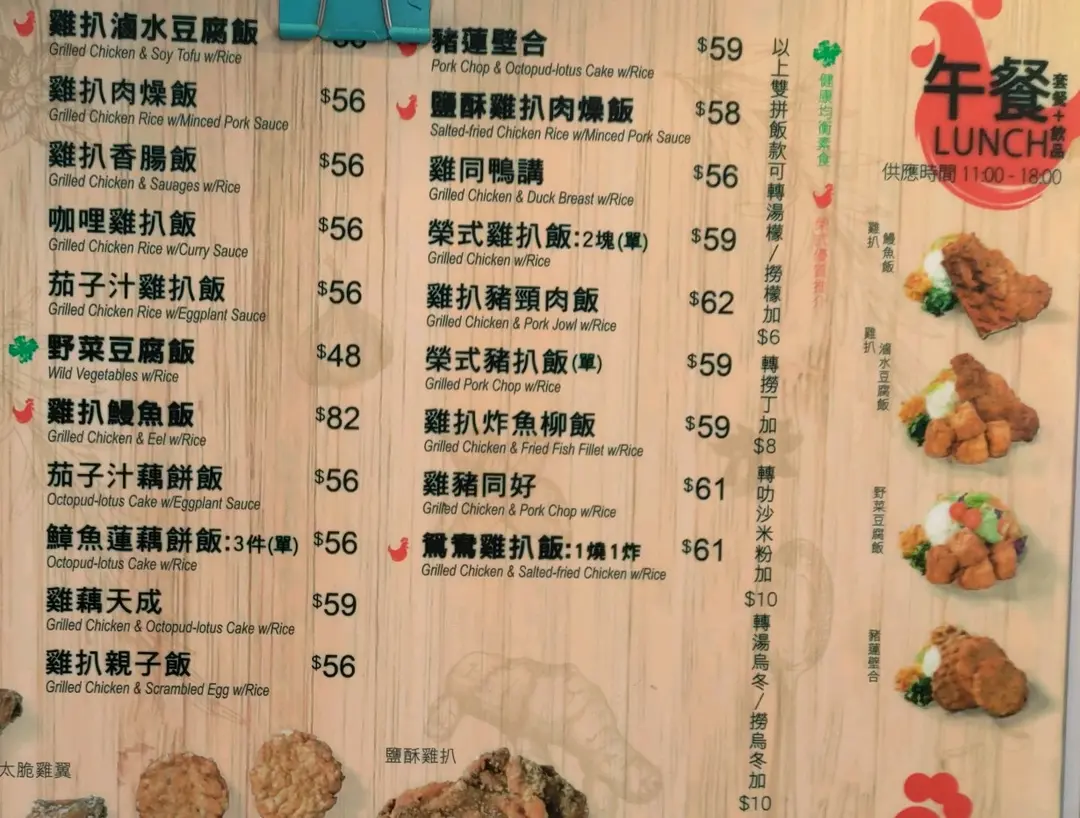 雞扒滷水豆腐飯
Grilled Chicken & Soy Tofu w/Rice
雞扒肉燥飯 $56
Grilled Chicken Rice w/Minced Pork Sauce
雞扒香腸飯 $56
Grilled Chicken & Sauages w/Rice
咖哩雞扒飯 $56
Grilled Chicken Rice w/Curry Sauce
茄子汁雞扒飯 $56
Grilled Chicken Rice w/Eggplant Sauce
野菜豆腐飯 $48
Wild Vegetables w/Rice
雞扒鰻魚飯 $82
Grilled Chicken & Eel w/Rice
茄子汁藕餅飯 $56
Octopud-lotus Cake w/Eggplant Sauce
鱆魚蓮藕餅飯:3件(單) $56
Octopud-lotus Cake w/Rice
雞藕天成 $59
Grilled Chicken & Octopud-lotus Cake w/Rice
雞扒親子飯 $56
Grilled Chicken & Scrambled Egg w/Rice
豬蓮壁合 $59
Pork Chop & Octopud-lotus Cake w/Rice
鹽酥雞扒肉燥飯 $58
Salted-fried Chicken Rice w/Minced Pork Sauce
雞同鴨講 $56
Grilled Chicken & Duck Breast w/Rice
榮式雞扒飯:2塊(單) $59
Grilled Chicken w/Rice
雞扒豬頸肉飯 $62
Grilled Chicken & Pork Jowl w/Rice
榮式豬扒飯(單) $59
Grilled Pork Chop w/Rice
雞扒炸魚柳飯 $59
Grilled Chicken & Fried Fish Fillet w/Rice
雞豬同好 $61
Grilled Chicken & Pork Chop w/Rice
鴛鴦雞扒飯:1燒1炸 $61
Grilled Chicken & Salted-fried Chicken w/Rice
以上雙拼飯款可轉湯檬/撈檬加$6
轉撈丁加$8
轉叻沙米粉加$10
轉湯烏冬/撈烏冬加$10
健康均衡素食
榮式優質推介
午餐
套餐+飲品
LUNCH
供應時間 11:00 - 18:00
雞扒
鰻魚飯
雞扒
滷水豆腐飯
野菜豆腐飯
豬蓮壁合
太脆雞翼
鹽酥雞扒